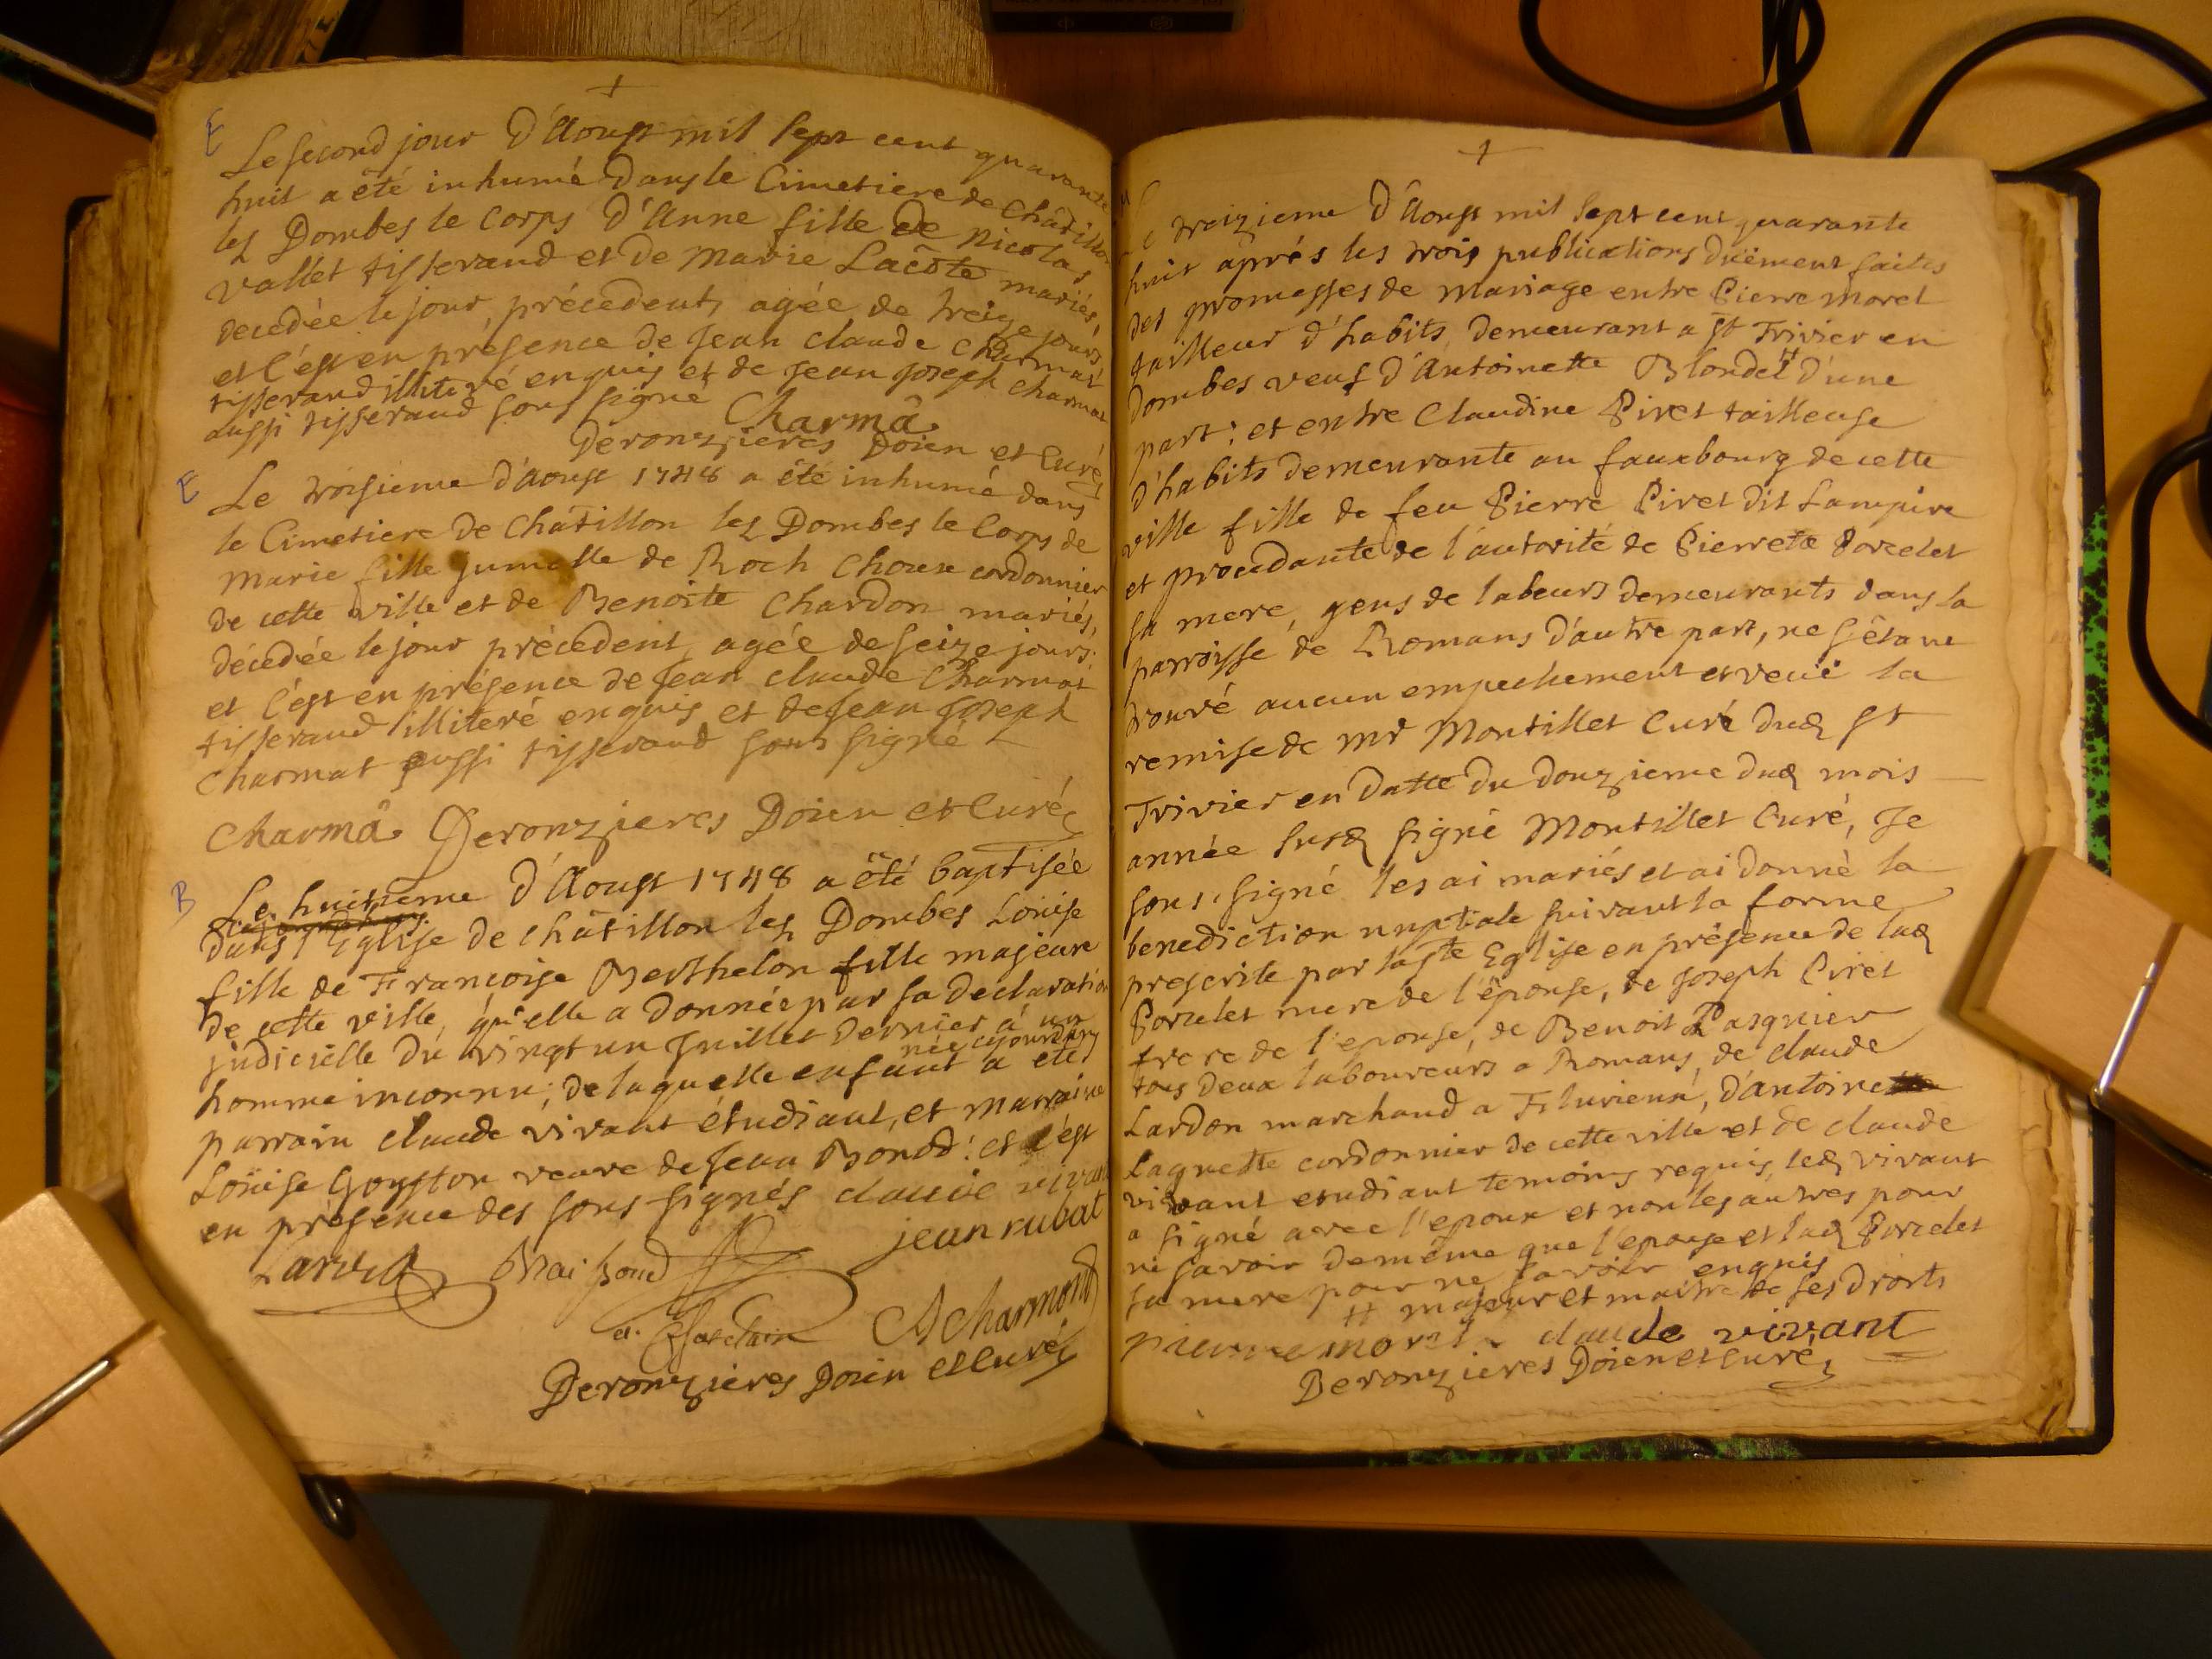 E
Le second jour d'Aoust mil sept cent quarante
huit a été inhumé dans le Cimetiere de Châtillon
les Dombes le Corps d'Anne fille de Nicolas
Vallet tisserand et de Marie Lacôte mariés,
decedée le jour précedent, agée de treize jours
et c'est en présence de Jean Claude Charmat
tisserand illiteré enquis et de Jean Joseph Charmat
aussi tisserand sous signé
Charmâ
Deronzieres Doien et Curé
E
Le troisieme d'Aoust 1748 a été inhumé dans
le Cimetiere de Châtillon les Dombes le Corps de
Marie fille jumelle de Roch Choux cordonnier
de cette ville et de Benoite Chardon mariés,
décedée le jour précedent, agée de seize jours.
et c'est en présence de Jean Claude Charmat
tisserand illiteré enquis et de Jean Joseph
Charmat aussi tisserand sous signé
Charmâ Deronzieres Doien et Curé
B
Le huitieme d'Aoust 1748 a été baptisée
dans l'Eglise de Châtillon les Dombes Loüise
fille de Françoise Berthelon fille majeure
de cette ville, qu'elle a donnée par sa declaration
judicielle du vingt un Juillet dernier à un
née cejourdhuy
homme inconnu; de laquelle enfant a été
parrain Claude Vivant étudiant, et marraine
Loüise Gouston veuve de Jean Bondd: et c'est
en présence des sous signés Claude Vivant
jean rubat
Maisond
Acharmond
Deronzieres Doien et Curé
M
Le treizieme d'Aoust mil sept cent quarante
huit aprés les trois publications düement faites
des promesses de mariage entre Pierre Morel
tailleur d'habits, demeurant a St Trivier en
Dombes veuf d'Antoinette Blondel ++ d'une
part; et entre Claudine Piret tailleuse
d'habits demeurante au fauxbourg de cette
ville fille de feu Pierre Piret dit Lampire
et procedante de l'autorité de Pierrete Porcelet
sa mere, gens de labeurs demeurants dans la
parroisse de Romans d'autre part, ne s'étant
trouvé aucun empechement et veüe la
remise de Mr Montillet Curé dud St
Trivier en datte du douzieme dud mois
année susd signé Montillet Curé, Je
sous. signé les ai mariés et ai donné la
benediction nuptiale suivant la forme
prescrite par la Ste Eglise en présence de lad
Porcelet mere de l'épouse, de Joseph Piret
frere de l'epouse, de Benoit Pasquier
tous deux laboureurs a Romans, de Claude
Lardon marchand a Fluvieux, d'antoine
Laguette cordonnier de cette ville et de Claude
vivant etudiant temoins requis, led vivant
a signé avec l'epoux et non les autres pour
ne savoir de même que l'epouse et lad Porcelet
sa mere pour ne savoir enquis
++ majeur et maitre de ses droits
pierre morel claude vivant
Deronzieres Doien et Curé